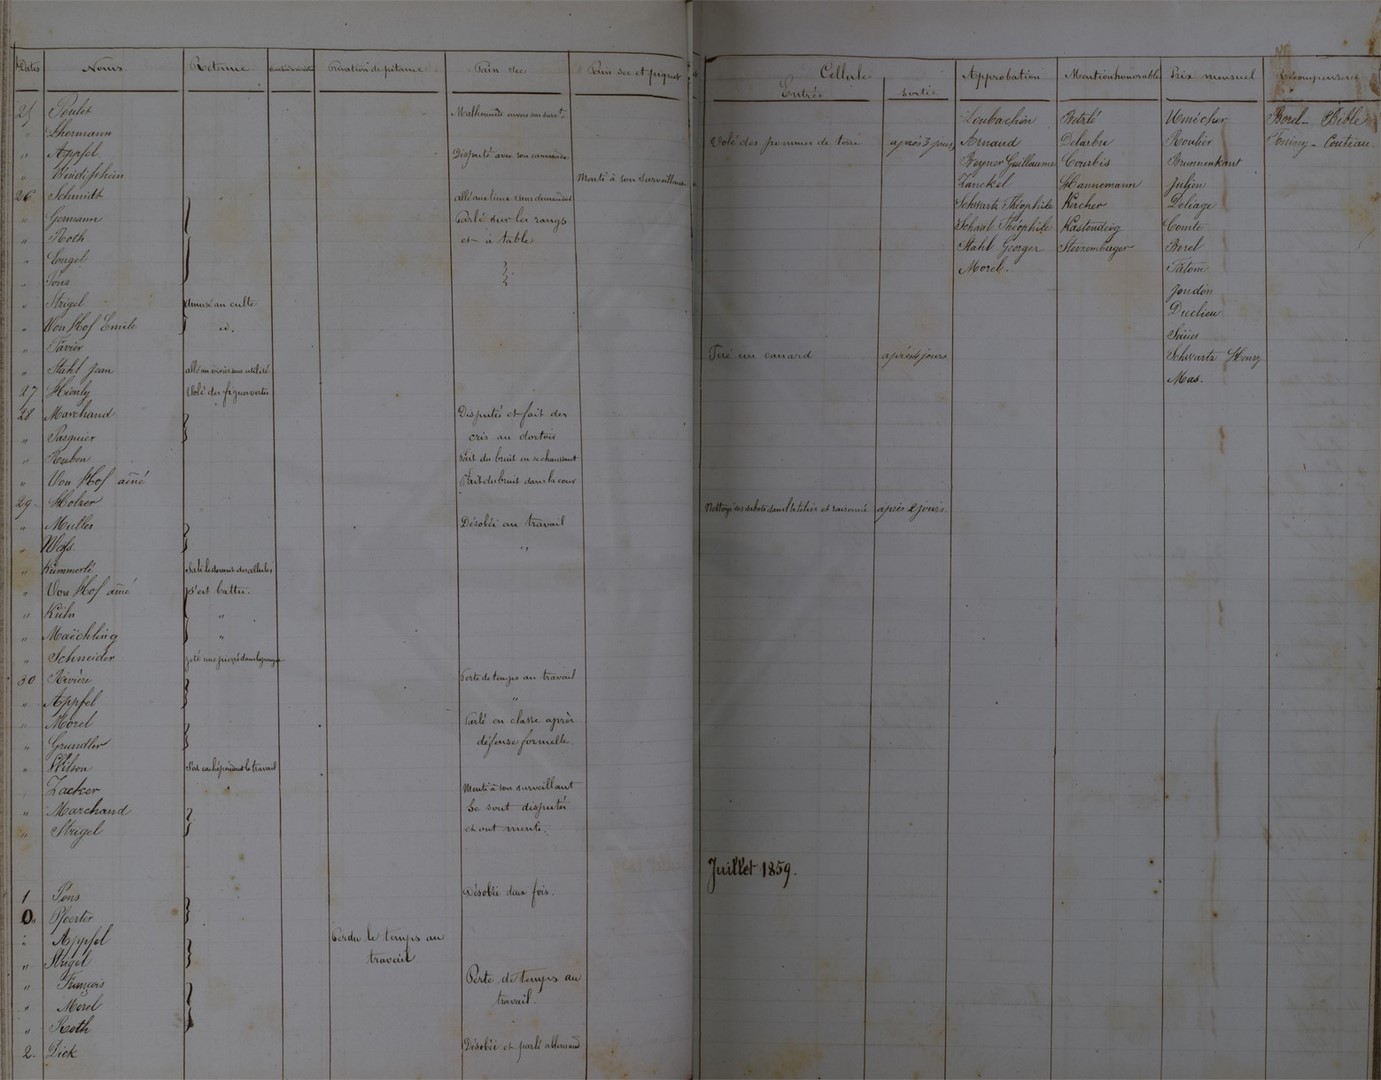 Dates Noms Retenue Privation de pitance Pain sec Pain sec et piquet
25 Poulet Malhonnête envers son surv.t
" Lhermann
" Appfel Disputé avec son camarade
" Windisheim Menti à son surveillant
26 Schmidt allé aux lieux sans demander
" Germann Parlé sur les rangs
" Roth et à table
" Engel
" Pons
" Strigel amusé au culte
" Von Hof Emile id.
" Favier
" Stahl Jean
27 Hienly Volé des figues vertes
28 Marchand Disputés et fait des
" Pasquier cris au dortoir
" Reuben Fait du bruit en se chaussant
" Von Hof aîné Fait du bruit dans la cour
29 Holzer
" Muller Désobéi au travail
" Wafs "
" Kümmerlé
" Von Hof aîné s'est battu.
" Kühn "
" Maëchling "
" Schneider
30 Rivière Perte de temps au travail
" Appfel "
" Morel Parlé en classe après
" Grundler défense formelle
" Wilson
Zacker Menti à son surveillant
" Marchand Se sont disputés
" Strigel et ont menti.
1 Pons Désobéi deux fois.
Pfoerter
Appfel Perdu le temps au
" Strigel travail
" François Perte de temps au
" Morel travail.
" Roth
2 Dick Désobéi et parlé allemand
Cellule Approbation Mention honorable Prix mensuel Récompenses
Entrée Sortie
Loubachin Betzlé Umécher Borel - Bible
Volé des pommes de terre après 3 jours Arnaud Delarbre Roulier Couteau
Reyner Guillaume Courbis Brunnenkant
Zanckel Hannemann Julien
Schwartz Théophile Kircher Deliage
Schaal Théophile Kastendeig Comte
Stahl George Steinemburger Borel
Morel. Faton
Joudon
Duclieu
Saïus
Tiré un canard après 4 jours Schwartz Henry
Mas.
Nettoyé ses sabots dans l'atelier et raisonné après 2 jours
Juillet 1859.